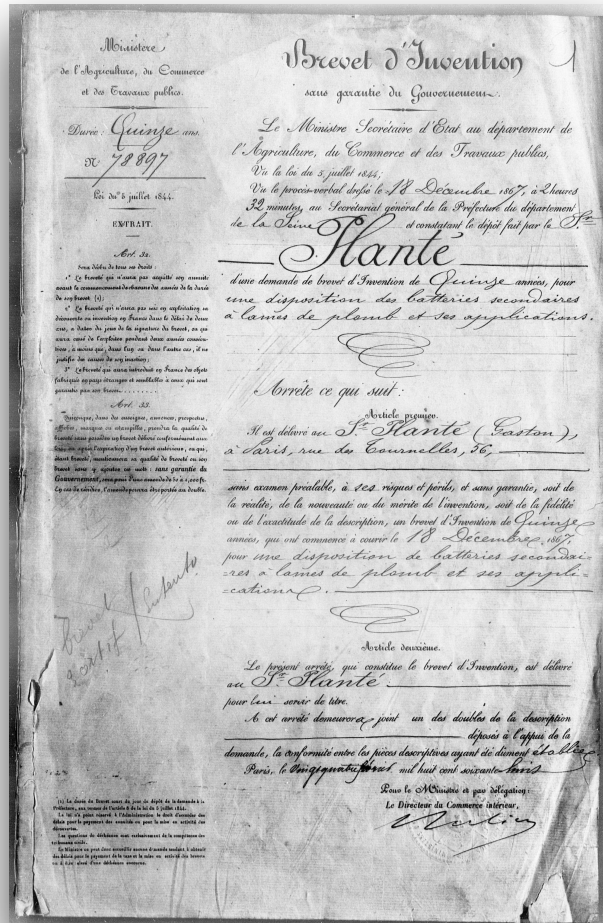 Ministère
de l'Agriculture, du Commerce
et des Travaux publics.
Durée : Quinze ans.
N° 78897
Loi du 5 juillet 1844.
EXTRAIT.
Art. 32.
Sera déchu de tous ses droits :
1° Le breveté qui n'aura pas acquitté son annuité
avant le commencement de chacune des années de la durée
de son brevet (1);
2° Le breveté qui n'aura pas mis en exploitation sa
découverte ou invention en France dans le délai de deux
ans, à dater du jour de la signature du brevet, ou qui
aura cessé de l'exploiter pendant deux années consécu-
tives, à moins que, dans l'un ou dans l'autre cas, il ne
justifie des causes de son inaction;
3° Le breveté qui aura introduit en France des objets
fabriqués en pays étranger et semblables à ceux qui sont
garantis par son brevet........
Art. 33.
Quiconque, dans des enseignes, annonces, prospectus,
affiches, marques ou estampilles, prendra la qualité de
breveté sans posséder un brevet délivré conformément aux
lois, ou après l'expiration d'un brevet antérieur, ou qui,
étant breveté, mentionnera sa qualité de breveté ou son
brevet sans y ajouter ces mots : sans garantie du
Gouvernement, sera puni d'une amende de 50 à 1,000 fr.
En cas de récidive, l'amende pourra être portée au double.
brevet
(1) La durée du brevet court du jour du dépôt de la demande à la
Préfecture, aux termes de l'article 8 de la loi du 5 juillet 1844.
La loi n'a point réservé à l'Administration le droit d'accorder des
délais pour le payement des annuités ou pour la mise en activité des
découvertes.
Les questions de déchéance sont exclusivement de la compétence des
tribunaux civils.
Le Ministre ne peut donc accueillir aucune demande tendant à obtenir
des délais pour le payement de la taxe et la mise en activité des brevets
ou à être relevé d'une déchéance encourue.
Brevet d'Invention
1
sans garantie du Gouvernement.
Le Ministre Secrétaire d'Etat au département de
l'Agriculture, du Commerce et des Travaux publics,
Vu la loi du 5 juillet 1844;
Vu le procès-verbal dressé le 18 Décembre 1867, à 2 heures
32 minutes, au Secrétariat général de la Préfecture du département
de la Seine et constatant le dépôt fait par le Sr.
Planté
d'une demande de brevet d'Invention de Quinze années, pour
une disposition des batteries secondaires
à lames de plomb et ses applications.
Arrête ce qui suit :
Article premier.
Il est délivré au Sr. Planté (Gaston),
à Paris, rue des Tournelles, 56,
sans examen préalable, à ses risques et périls, et sans garantie, soit de
la réalité, de la nouveauté ou du mérite de l'invention, soit de la fidélité
ou de l'exactitude de la description, un brevet d'Invention de Quinze
années, qui ont commencé à courir le 18 Décembre 1867,
pour une disposition de batteries secondai-
=res à lames de plomb et ses appli-
=cations.
Article deuxième.
Le présent arrêté, qui constitue le brevet d'Invention, est délivré
au Sr. Planté
pour lui servir de titre.
A cet arrêté demeurera joint un des doubles de la description
déposés à l'appui de la
demande, la conformité entre les pièces descriptives ayant été dûment établie.
Paris, le mil huit cent soixante
Pour le Ministre et par délégation :
Le Directeur du Commerce intérieur,